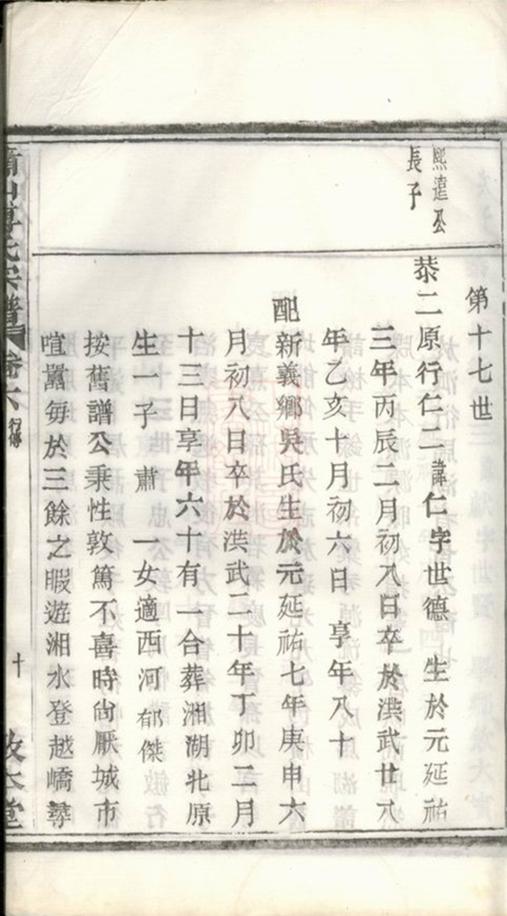 第十七世
熙達公
長子
恭二原行仁二諱仁字世德　生於元延祐
三年丙辰二月初八日卒於洪武廿八
年乙亥十月初六日　享年八十
配新義鄉吳氏生於元延祐七年庚申六
月初八日卒於洪武二十年丁卯二月
十三日享年六十有一合葬湘湖北原
生一子　肅　一女適西河郁傑
按舊譜公秉性敦篤不喜時尚厭城市
喧囂每於三餘之暇遊湘水登越嶠尋
蕭山 氏宗譜 卷六 行傳　十